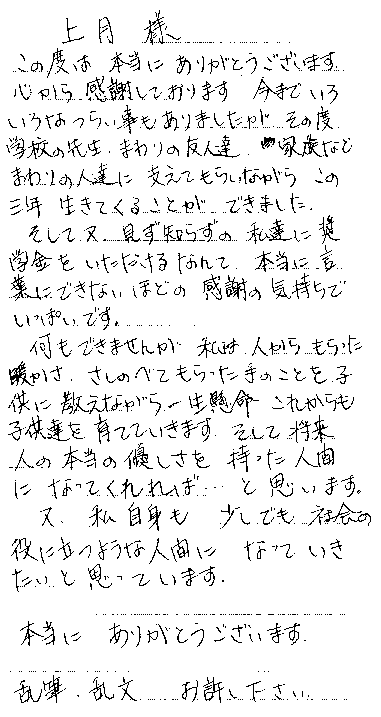 上月 様
この度は 本当に ありがとうございます
心から 感謝しております 今まで いろ
いろなつらい事もありましたが その度
学校の先生 まわりの友人達 家族など
まわりの人達に 支えてもらいながら この
三年 生きてくることが できました.
そして又 見ず知らずの 私達に 奨
学金を いただけるなんて 本当に 言
葉にできない ほどの 感謝の 気持ちで
いっぱいです。
何もできませんが 私は 人から もらった
暖かさ、さしのべてもらった手のことを 子
供に 教えながら 一生懸命 これからも
子供達を 育てていきます そして 将来
人の 本当の 優しさを 持った 人間
に なってくれれば… と 思います。
又. 私自身も 少しでも 社会の
役に立つような人間に なって いき
たいと思っています.
本当に ありがとうございます.
乱筆・乱文 お許し下さい.